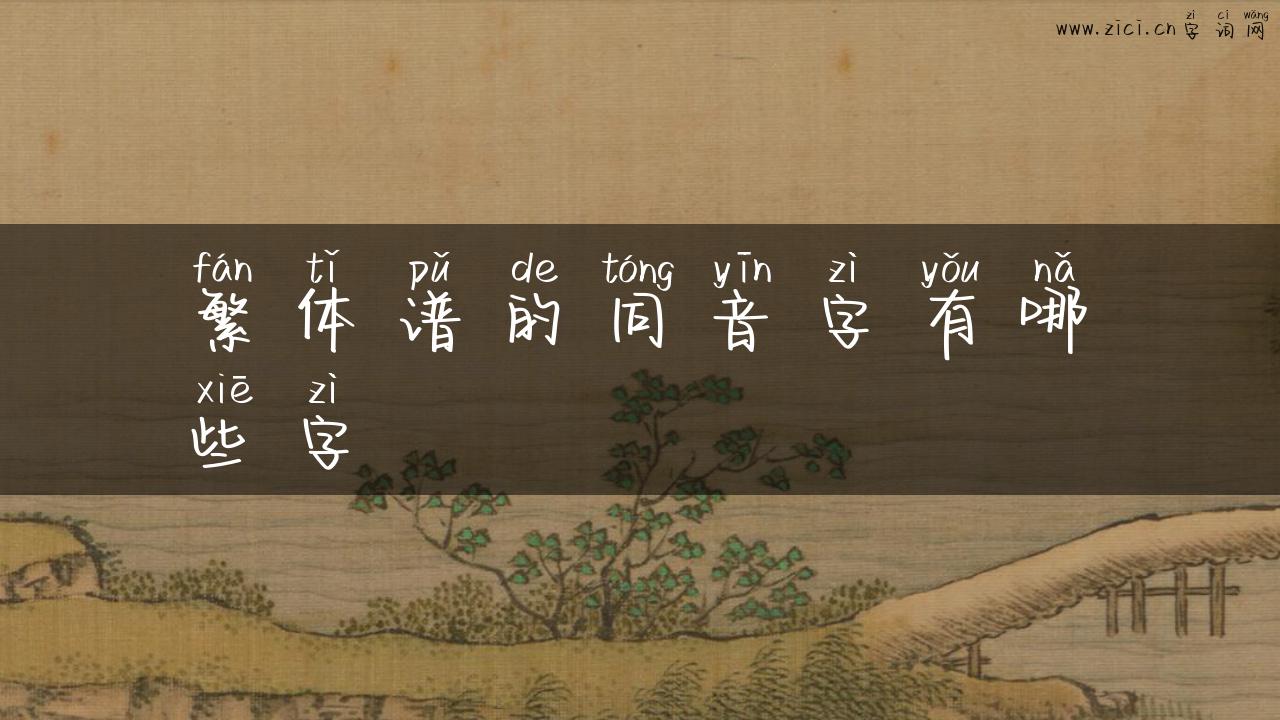 zì cí wǎng
www.zici.cn 字 词 网
fán tǐ pǔ de tóng yīn zì yǒu nǎ
繁 体 谱 的 同 音 字 有 哪
xiē zì
些 字